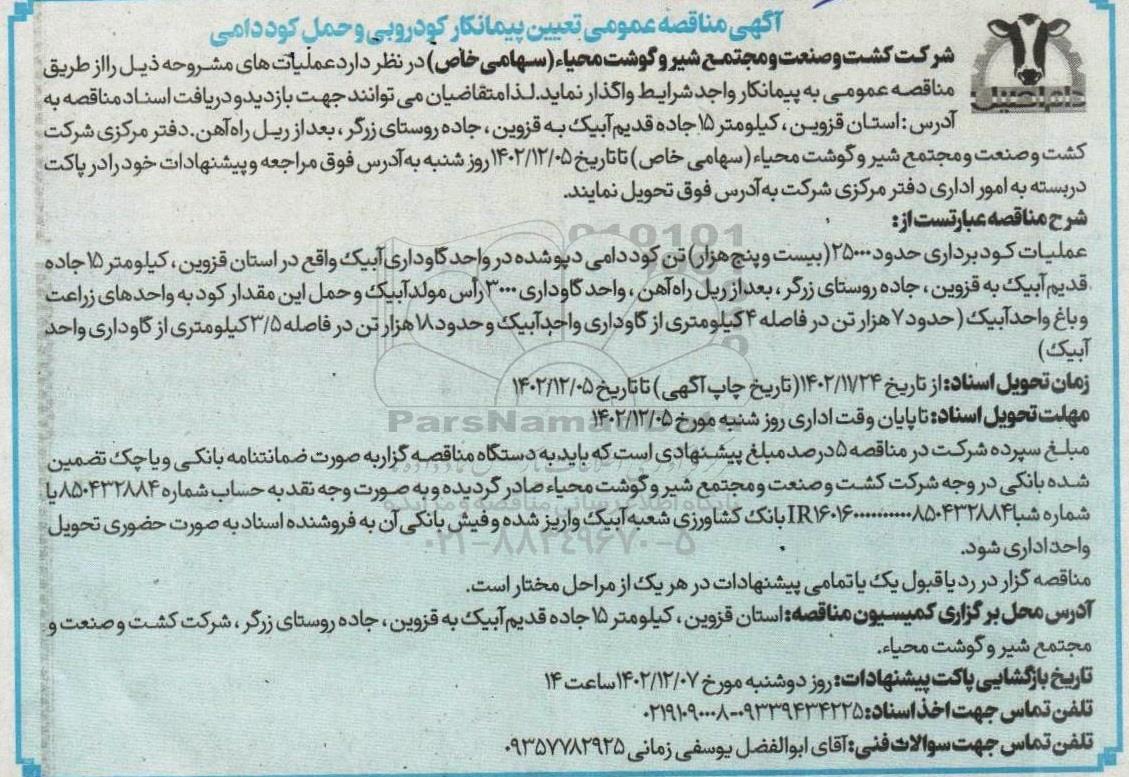 آگهی مناقصه عمومی تعیین پیمانکار کودروبی و حمل کود دامی
شرکت کشت و صنعت و مجتمع شیر و گوشت محیاء (سهامی خاص) در نظر دارد عملیات های مشروحه ذیل را از طریق
مناقصه عمومی به پیمانکار واجد شرایط واگذار نماید. لذا متقاضیان می توانند جهت بازدید و دریافت اسناد مناقصه به
آدرس: استان قزوین، کیلومتر ۱۵ جاده قدیم آبیک به قزوین، جاده روستای زرگر، بعد از ریل راه آهن. دفتر مرکزی شرکت
کشت و صنعت و مجتمع شیر و گوشت محیاء (سهامی خاص) تا تاریخ ۱۴۰۲/۱۲/۰۵ روز شنبه به آدرس فوق مراجعه و پیشنهادات خود را در پاکت
دربسته به امور اداری دفتر مرکزی شرکت به آدرس فوق تحویل نمایند.
شرح مناقصه عبارتست از:
عملیات کود برداری حدود ۲۵۰۰۰ (بیست و پنج هزار) تن کود دامی دپو شده در واحد گاوداری آبیک واقع در استان قزوین، کیلومتر ۱۵ جاده
قدیم آبیک به قزوین، جاده روستای زرگر، بعد از ریل راه آهن، واحد گاوداری ۳۰۰۰ رأس مولد آبیک و حمل این مقدار کود به واحدهای زراعت
و باغ واحد آبیک (حدود ۷ هزار تن در فاصله ۴ کیلومتری از گاوداری واحد آبیک و حدود ۱۸ هزار تن در فاصله ۳/۵ کیلومتری از گاوداری واحد
آبیک)
زمان تحویل اسناد: از تاریخ ۱۴۰۲/۱۱/۲۴ (تاریخ چاپ آگهی) تا تاریخ ۱۴۰۲/۱۲/۰۵
مهلت تحویل اسناد: تا پایان وقت اداری روز شنبه مورخ ۱۴۰۲/۱۲/۰۵
ParsNamadData
مبلغ سپرده شرکت در مناقصه ۵ درصد مبلغ پیشنهادی است که باید به دستگاه مناقصه گزار به صورت ضمانتنامه بانکی و یا چک تضمین
شده بانکی در وجه شرکت کشت و صنعت و مجتمع شیر و گوشت محیاء صادر گردیده و به صورت وجه نقد به حساب شماره ۸۵۰۴۳۲۸۸۴ یا
شماره شبا IR۱۶۰۱۶۰۰۰۰۰۰۰۰۰۰۰۸۵۰۴۳۲۸۸۴ بانک کشاورزی شعبه آبیک واریز شده و فیش بانکی آن به فروشنده اسناد به صورت حضوری تحویل
۰۲۱-۸۸۳۴۹۶۷۰-۵
واحد اداری شود.
مناقصه گزار در رد یا قبول یک یا تمامی پیشنهادات در هر یک از مراحل مختار است.
آدرس محل برگزاری کمیسیون مناقصه: استان قزوین، کیلومتر ۱۵ جاده قدیم آبیک به قزوین، جاده روستای زرگر، شرکت کشت و صنعت و
مجتمع شیر و گوشت محیاء.
تاریخ بازگشایی پاکت پیشنهادات: روز دوشنبه مورخ ۱۴۰۲/۱۲/۰۷ ساعت ۱۴
تلفن تماس جهت اخذ اسناد: ۰۹۳۳۹۴۳۴۲۲۵-۰۲۱۹۱۰۹۰۰۰۸
تلفن تماس جهت سوالات فنی: آقای ابوالفضل یوسفی زمانی ۰۹۳۵۷۷۸۲۹۲۵